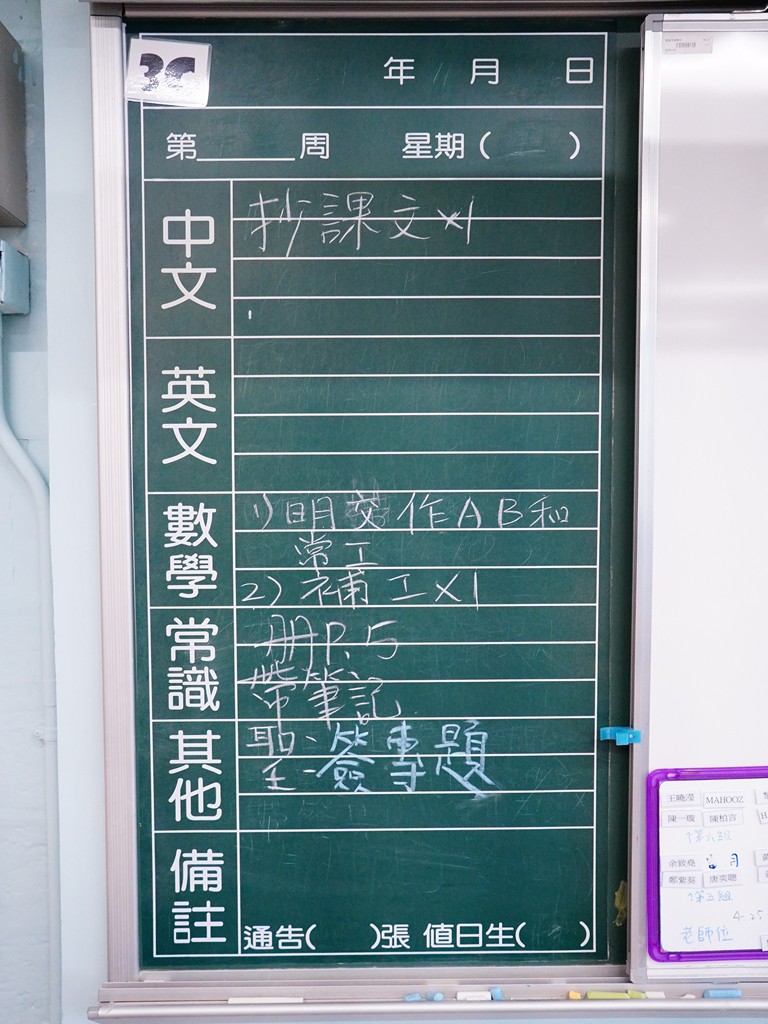 3C
年 月 日
第 周 星期( )
中文
抄課文×1
英文
數學
1)明交作AB和
常工
2)補工×1
常識
冊P.5
帶筆記
其他
簽專題
備註
通告( )張 值日生( )
王曉瀅 MAHOOZ
陳一璇 陳柏言
余鎧堯
鄭紫葵 唐奕聰
4.25
老師位